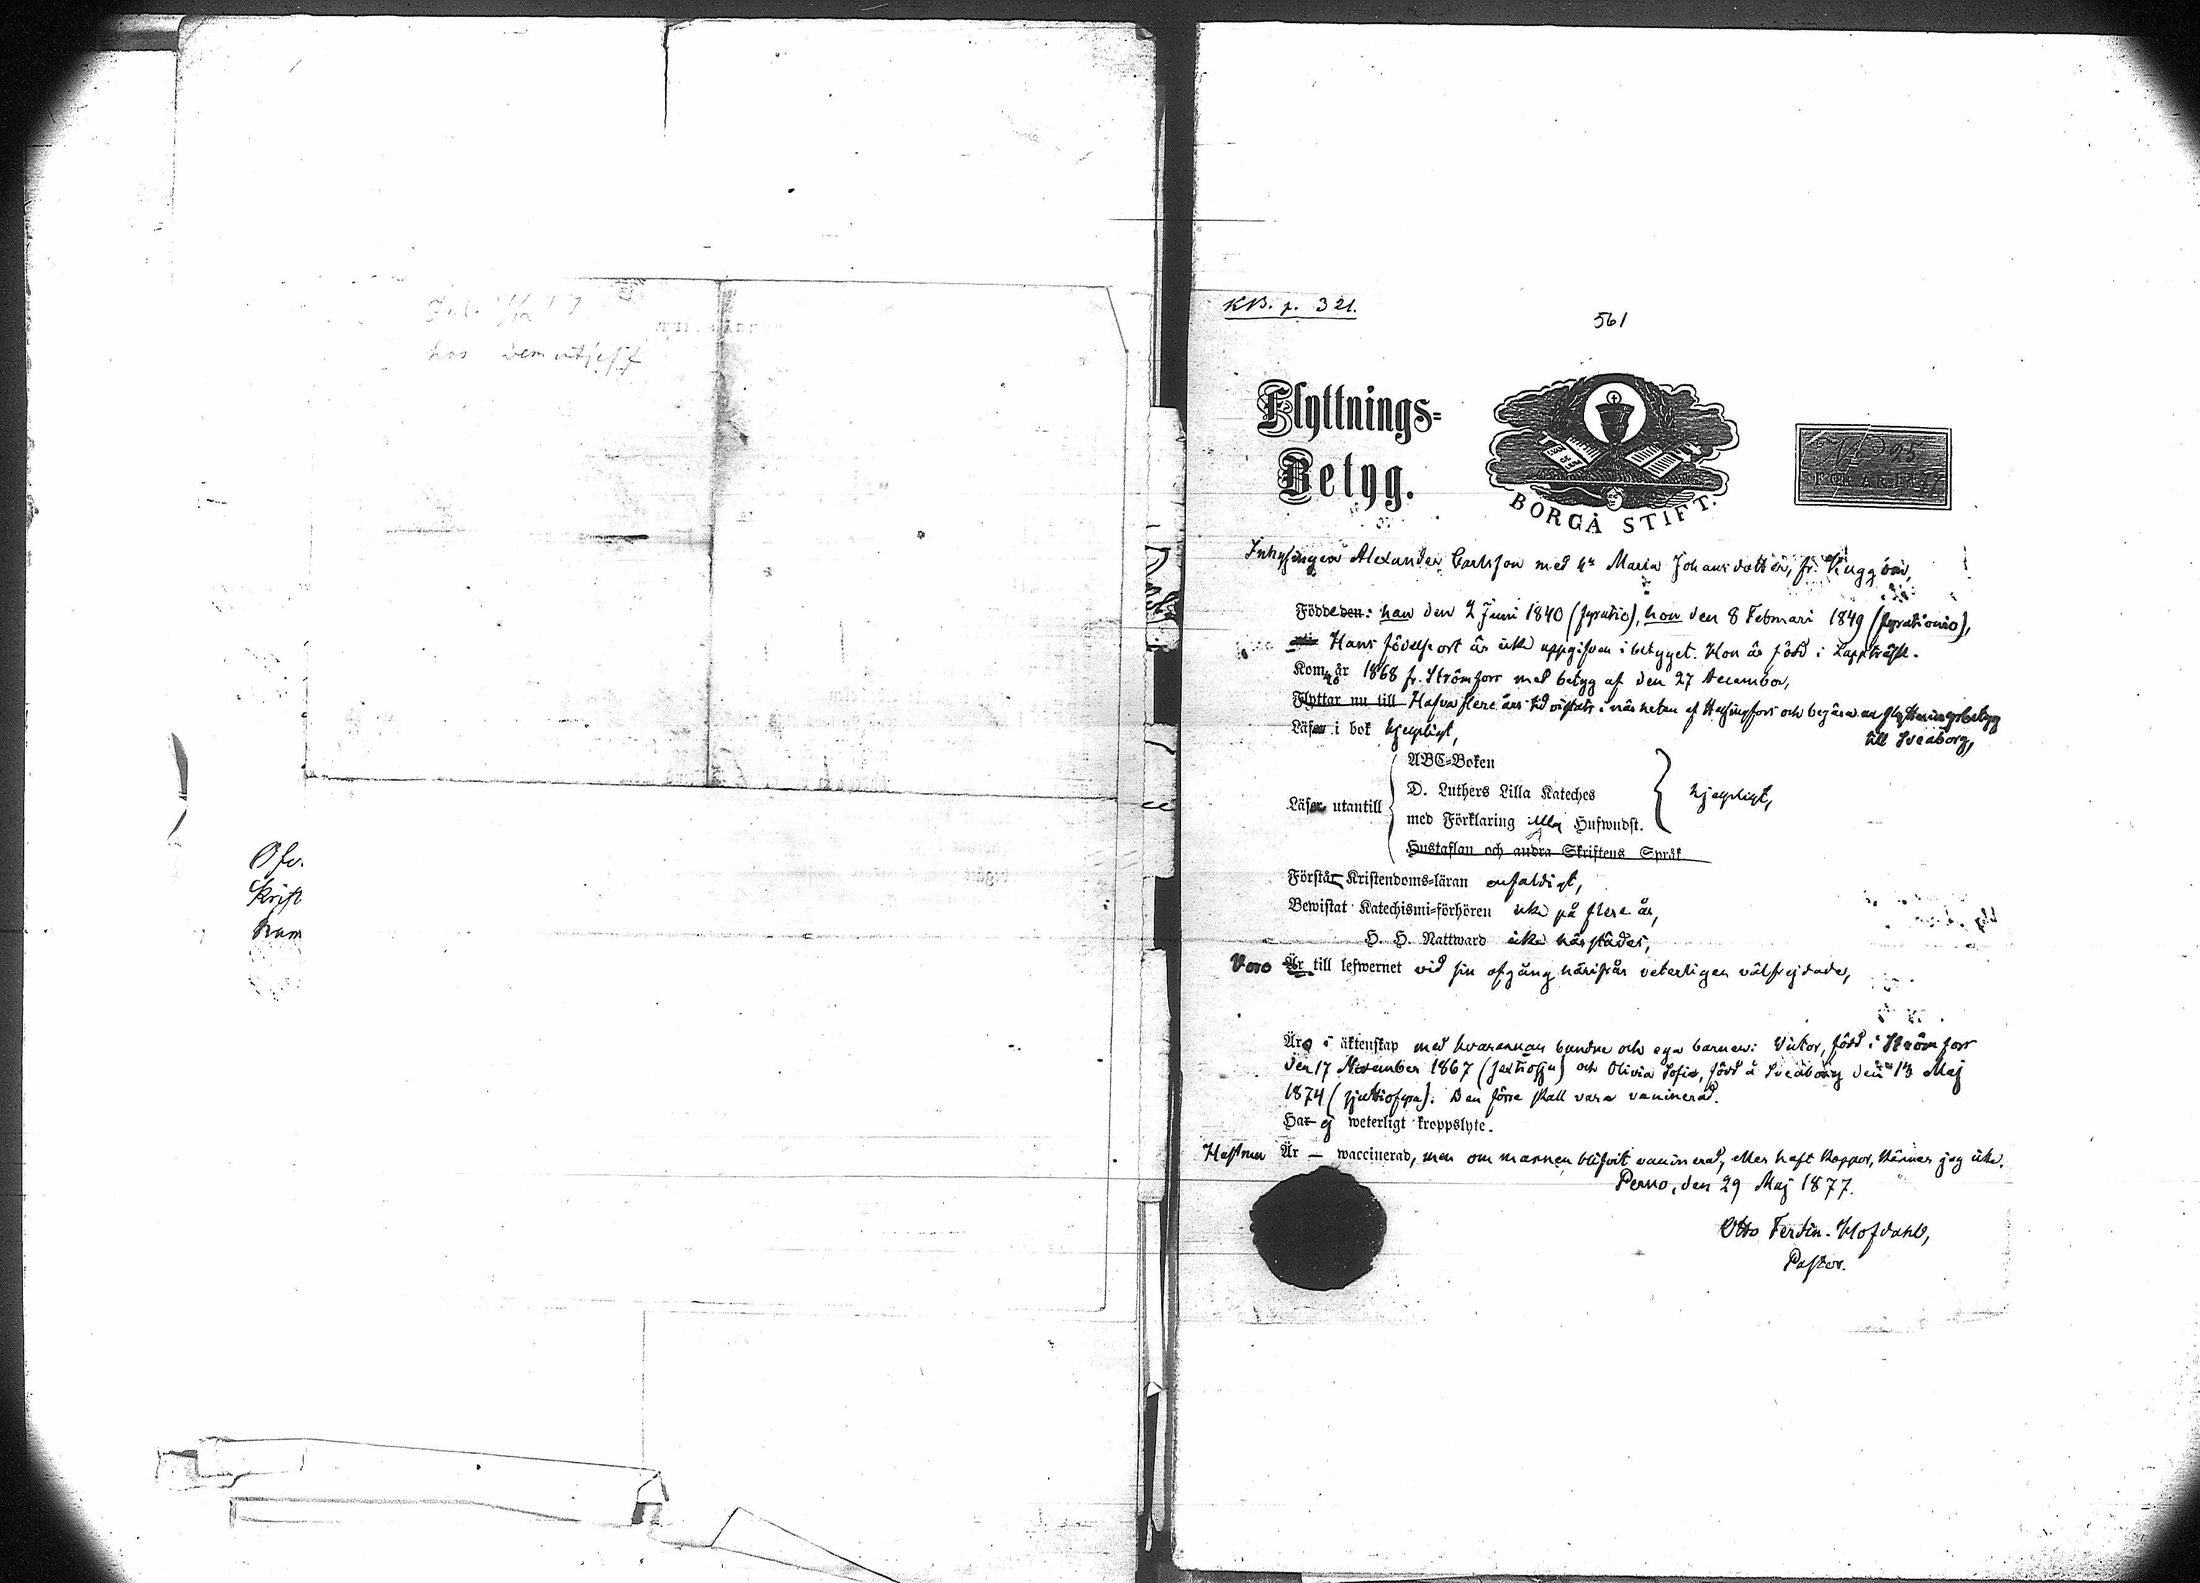 hos dem utgift
Öfv.
Skrift
Nam
KB. p. 321.
561
Flyttnings-
Betyg.
BORGÅ STIFT.
No 95
FÖR ÅR 18
Inhysingen Alexander Carlsson med h. Maria Johansdotter, fr. Kuggom,
Födde den: han den 2 Juni 1840 (fyratio), hon den 8 Februari 1849 (fyrationio),
Hans födelseort är icke uppgifven i betyget. Hon är född i Lappträsk.
Kommo år 1868 fr. Strömfors med betyg af den 27 December,
Flyttar nu till Hafva flere års tid vistats i närheten af Helsingfors och begära nu flyttningsbetyg
till Sveaborg,
Läsa i bok hjelpligt,
Läsa utantill
ABC-Boken
D. Luthers Lilla Kateches
med Förklaring Hufwudst.
Hustaflan och andra Skriftens Språk
hjelpligt,
Förstå Kristendoms-läran enfaldigt,
Bewistat Katechismi-förhören icke på flere år,
H. H. Nattward icke härstädes,
Voro Är till lefwernet vid sin afgång härifrån veterligen välfrejdade,
Äro i äktenskap med hvarannan bundne och ega barnen: Victor, född i Strömfors
den 17 November 1867 (sextiosju) och Olivia Sofia, född å Sveaborg den 13 Maj
1874 (sjuttiofyra). Den förre skall vara vaccinerad.
Har ej weterligt kroppslyte.
Hustrun Är – waccinerad, men om mannen blifvit vaccinerad, eller haft koppor, känner jag icke.
Perno, den 29 Maj 1877.
Otto Ferdin. Hofdahl,
Pastor.